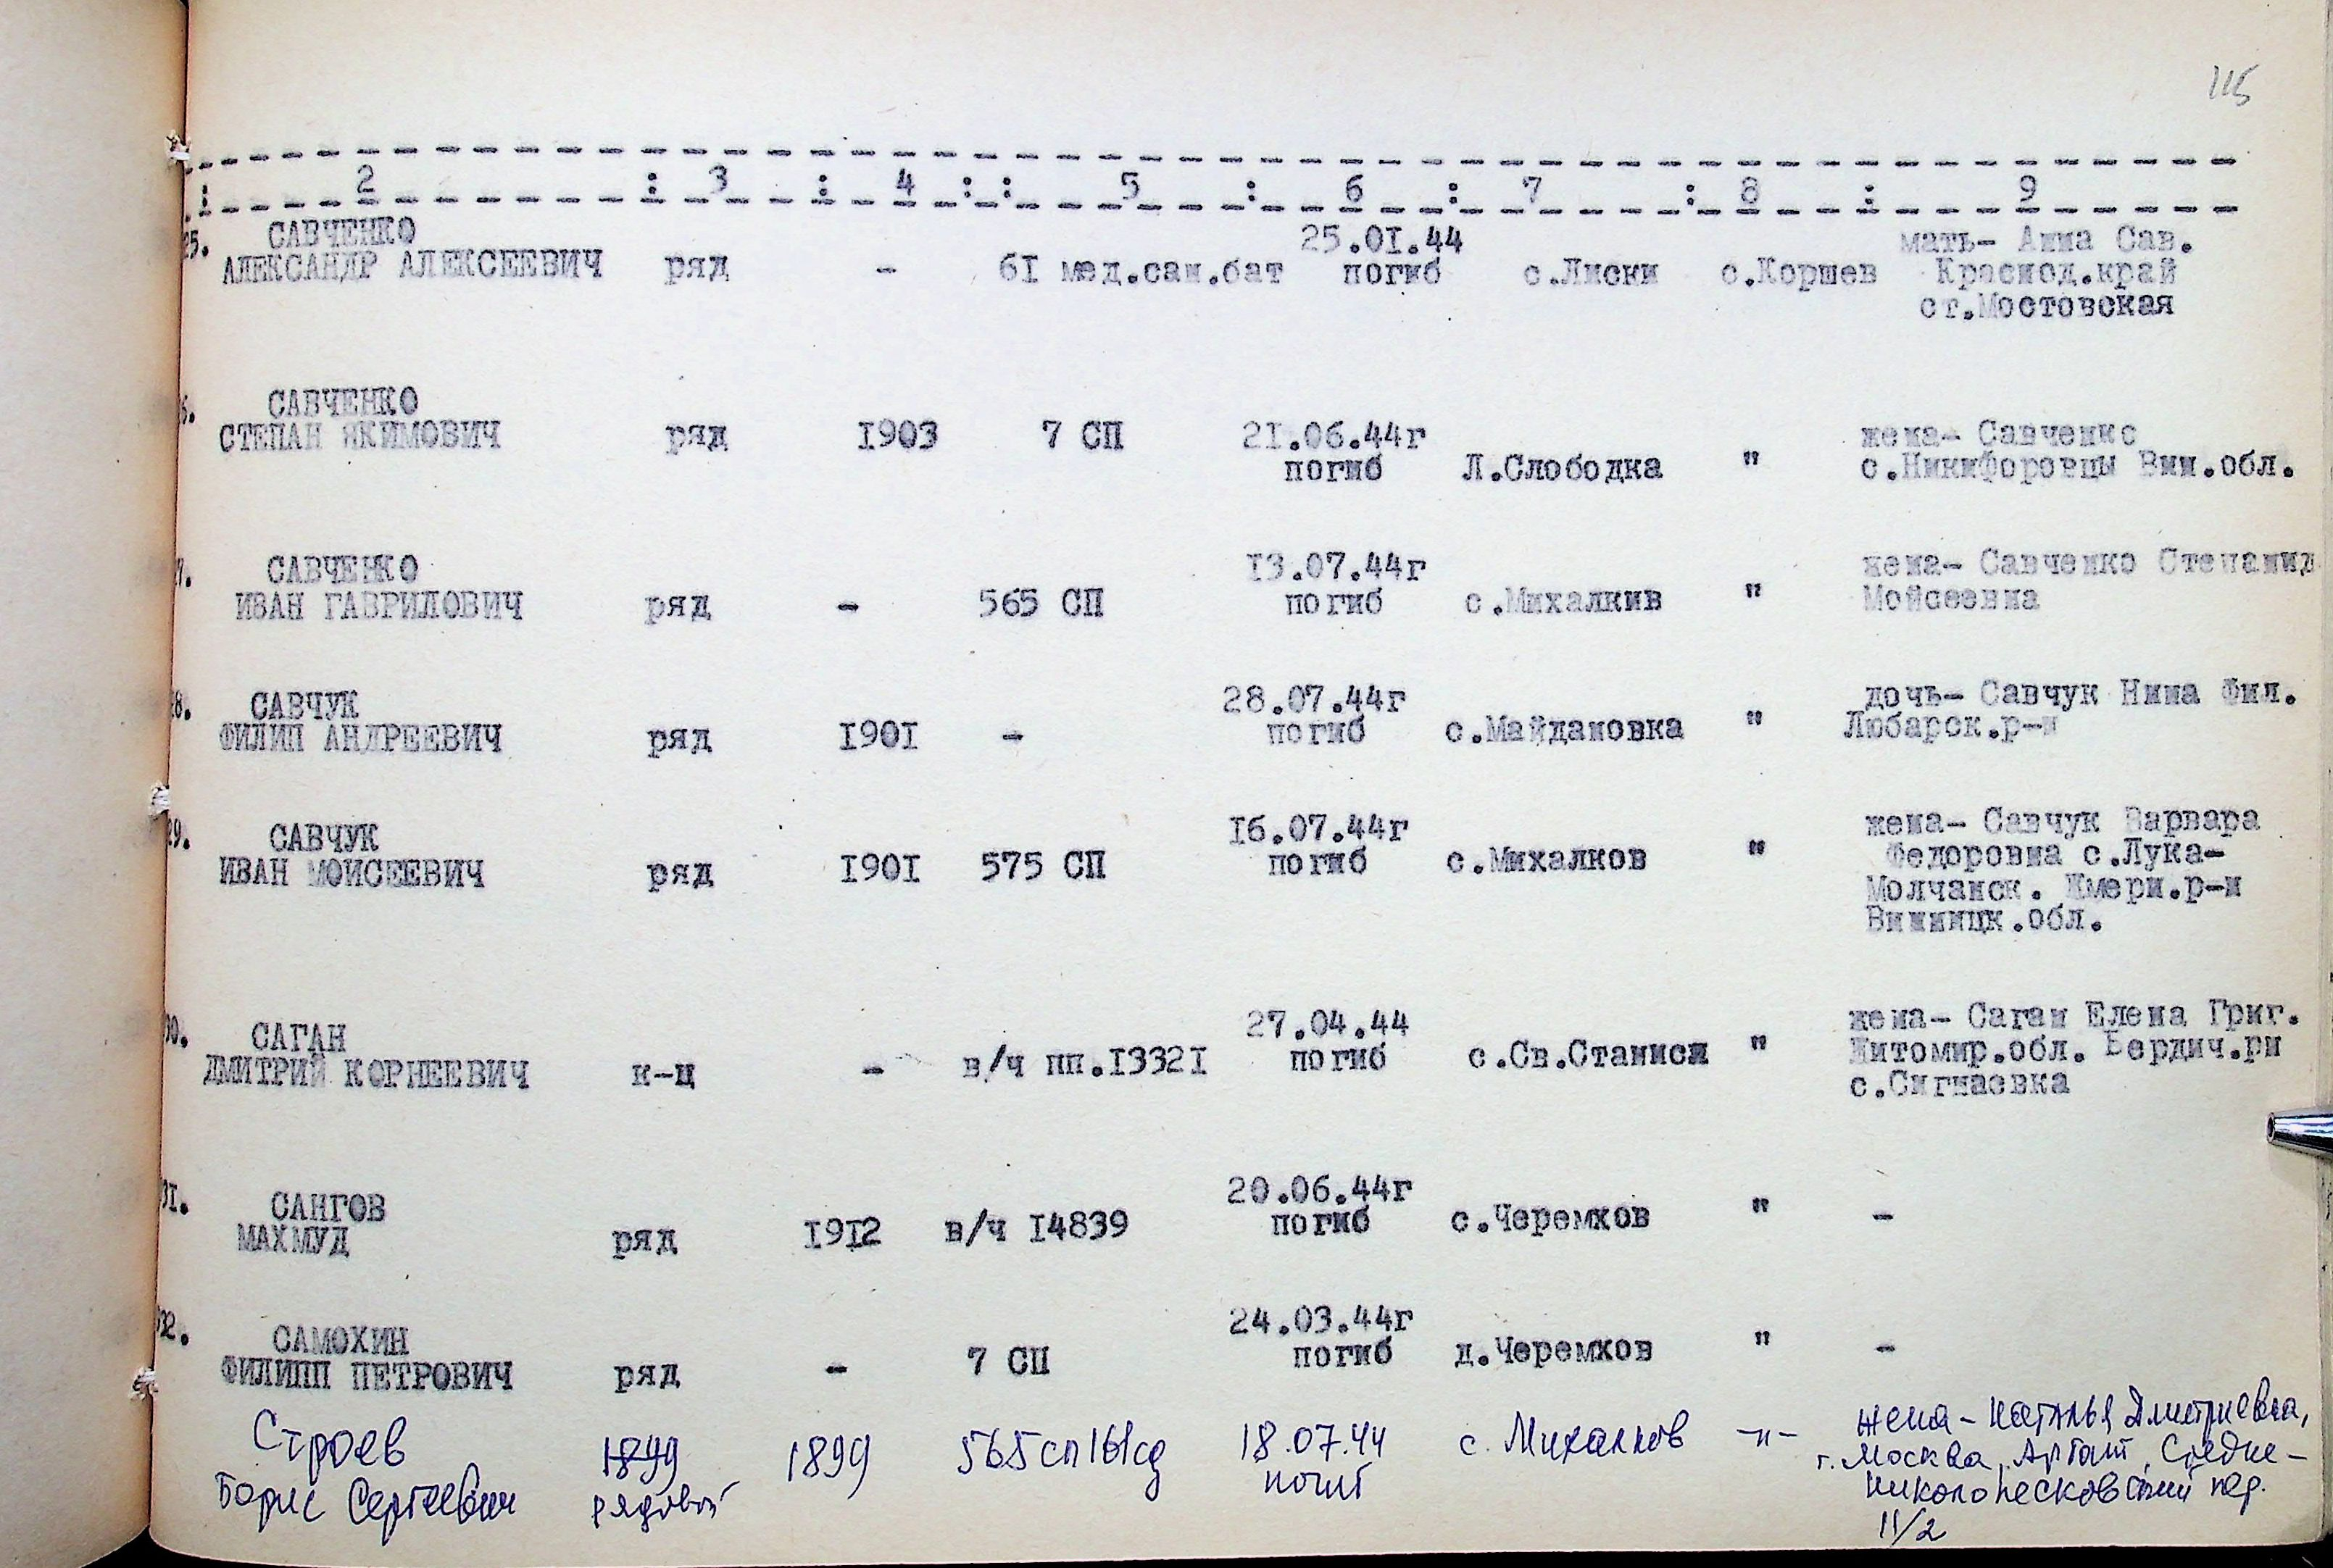 115
: 2 : 3 : 4 : : 5 : 6 : 7 : 8 : 9
25. САВЧЕНКО АЛЕКСАНДР АЛЕКСЕЕВИЧ ряд - 61 мед.сан.бат 25.01.44 погиб с.Лиски с.Коршев мать- Анна Сав.
Краснод.край
ст.Мостовская
6. САВЧЕНКО
СТЕПАН ЯКИМОВИЧ ряд 1903 7 СП 21.06.44г погиб Л.Слободка " жена- Савченко
с.Никифоровцы Вин.обл.
7. САВЧЕНКО
ИВАН ГАВРИЛОВИЧ ряд - 565 СП 13.07.44г погиб с.Михалкив " жена- Савченко Степанид
Мойсеевна
28. САВЧУК
ФИЛИП АНДРЕЕВИЧ ряд 1901 - 28.07.44г погиб с.Майдановка " дочь- Савчук Нина Фил.
Любарск.р-н
29. САВЧУК
ИВАН МОИСЕЕВИЧ ряд 1901 575 СП 16.07.44г погиб с.Михалков " жена- Савчук Варвара
Федоровна с.Лука-
Молчанск. Жмерн.р-н
Винницк.обл.
30. САГАН
ДМИТРИЙ КОРНЕЕВИЧ к-ц - в/ч пп.13321 27.04.44 погиб с.Св.Станисл " жена- Саган Елена Григ.
Житомир.обл. Бердич.рн
с.Сигнаевка
31. САНГОВ
МАХМУД ряд 1912 в/ч 14839 20.06.44г погиб с.Черемхов " -
32. САМОХИН
ФИЛИПП ПЕТРОВИЧ ряд - 7 СП 24.03.44г погиб д.Черемхов " -
Строев
Борис Сергеевич 1899 рядовой 1899 565 сп 161 сд 18.07.44 погиб с. Михалков -"- жена - Наталья Дмитриевна,
г. Москва, Арбат, Средне-
николопесковский пер.
11/2